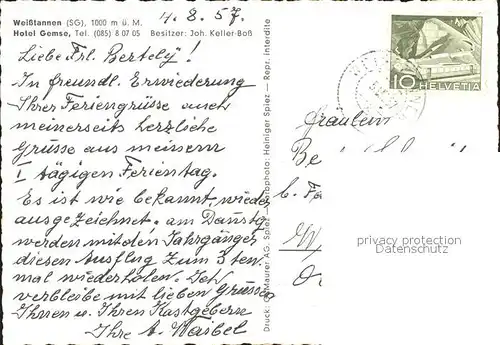 Weißtannen (SG), 1000 m ü. M.
Hotel Gemse, Tel. (085) 8 07 05 Besitzer: Joh. Keller-Boß
4.8.57.
Liebe Frl. Bertely!
In freundl. Erwiederung
Ihrer Feriengrüsse auch
meinerseits herzliche
Grüsse aus meinem
I tägigen Ferientag.
Es ist wie bekannt wieder
ausgezeichnet. am
werden mit den Jahrgänger
diesen Ausflug zum 3ten
mal wiederholen. Ich
verbleibe mit lieben Grüssen
Ihnen u. Ihren
Ihre A. Waibel
Druck: Maurer AG. Spiez — Photo: Heiniger Spiez — Repr. interdite
10
HELVETIA
Fräulein
Be
b.
privacy protection
Datenschutz